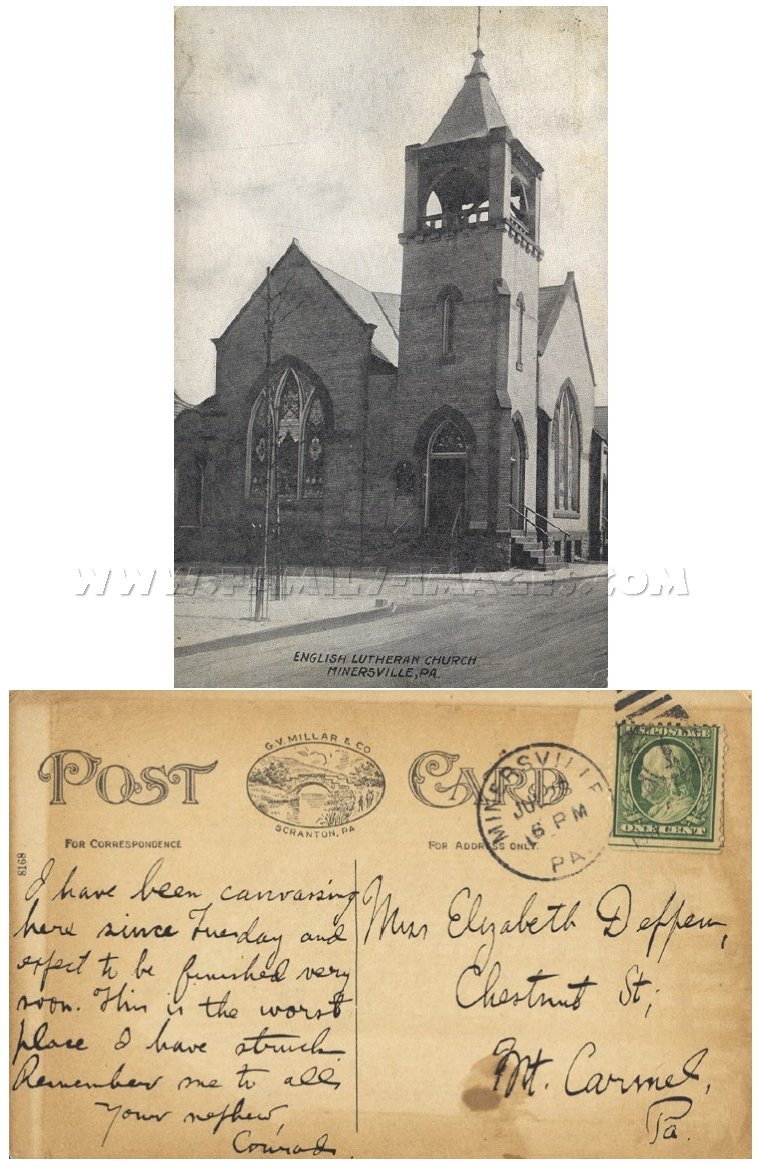 WWW.FAMILY-IMAGES.COM
ENGLISH LUTHERAN CHURCH
MINERSVILLE, PA.
POST CARD
G.V. MILLAR & CO
SCRANTON, PA
MINERSVILLE
6 PM
PA.
U.S. POSTAGE
ONE CENT
FOR CORRESPONDENCE
FOR ADDRESS ONLY.
8168
I have been canvassing
here since Tuesday and
expect to be finished very
soon. This is the worst
place I have struck.
Remember me to all
Your nephew,
Conrad.
Miss Elizabeth Deppen,
Chestnut St,
Mt. Carmel,
Pa.